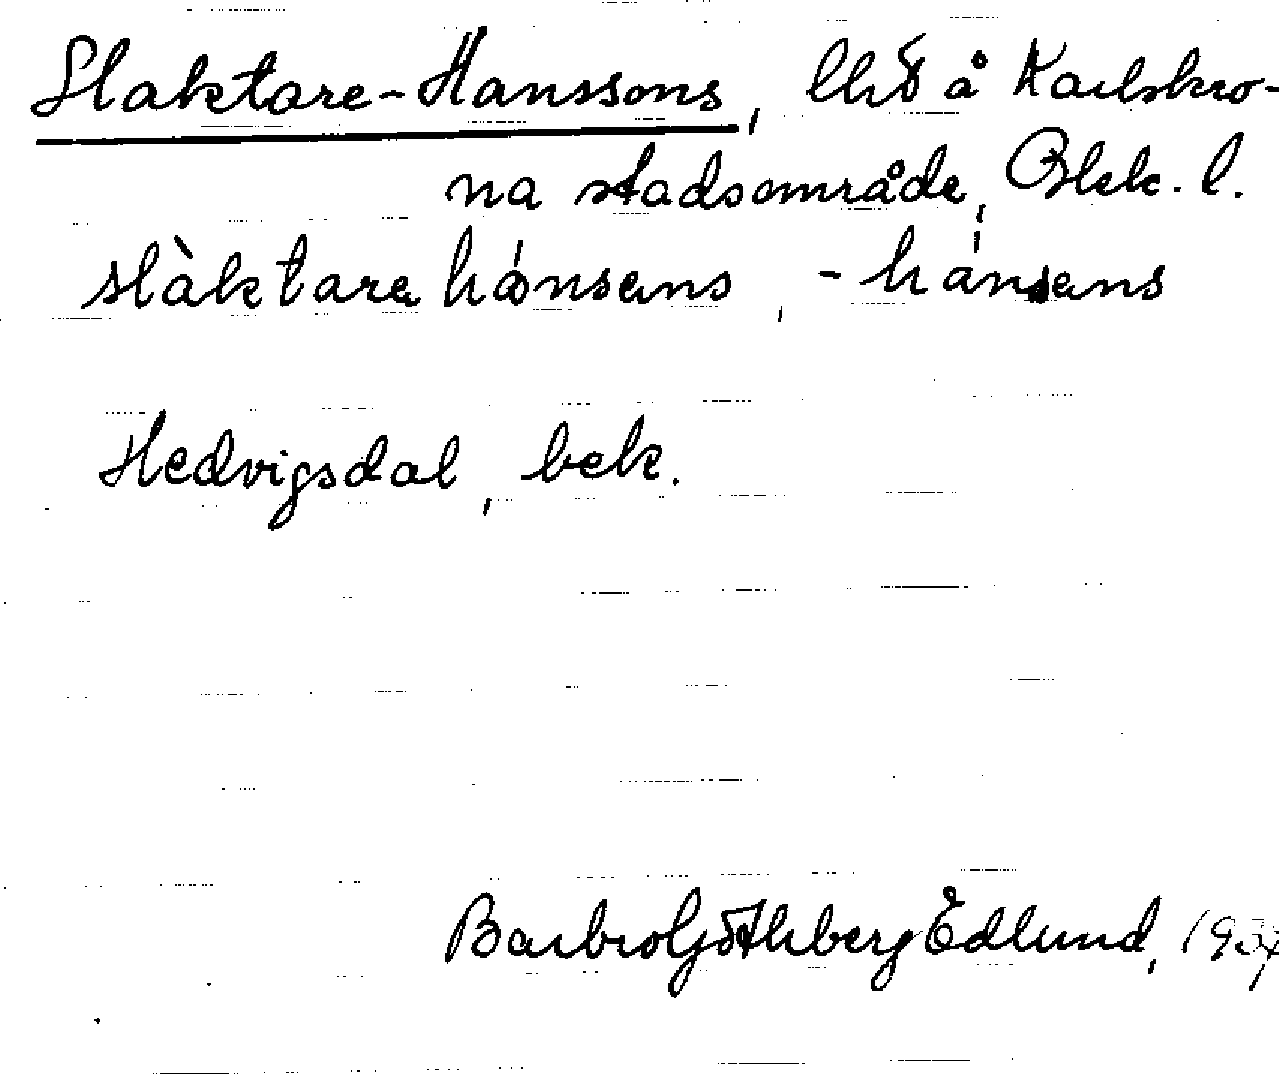 Slaktare-Hanssons, lht å Karlskro-
na stadsområde, Blek. l.
slàktarehánsens, -hánsens
Hedvigsdal, bek.
Barbro Göthberg Edlund,